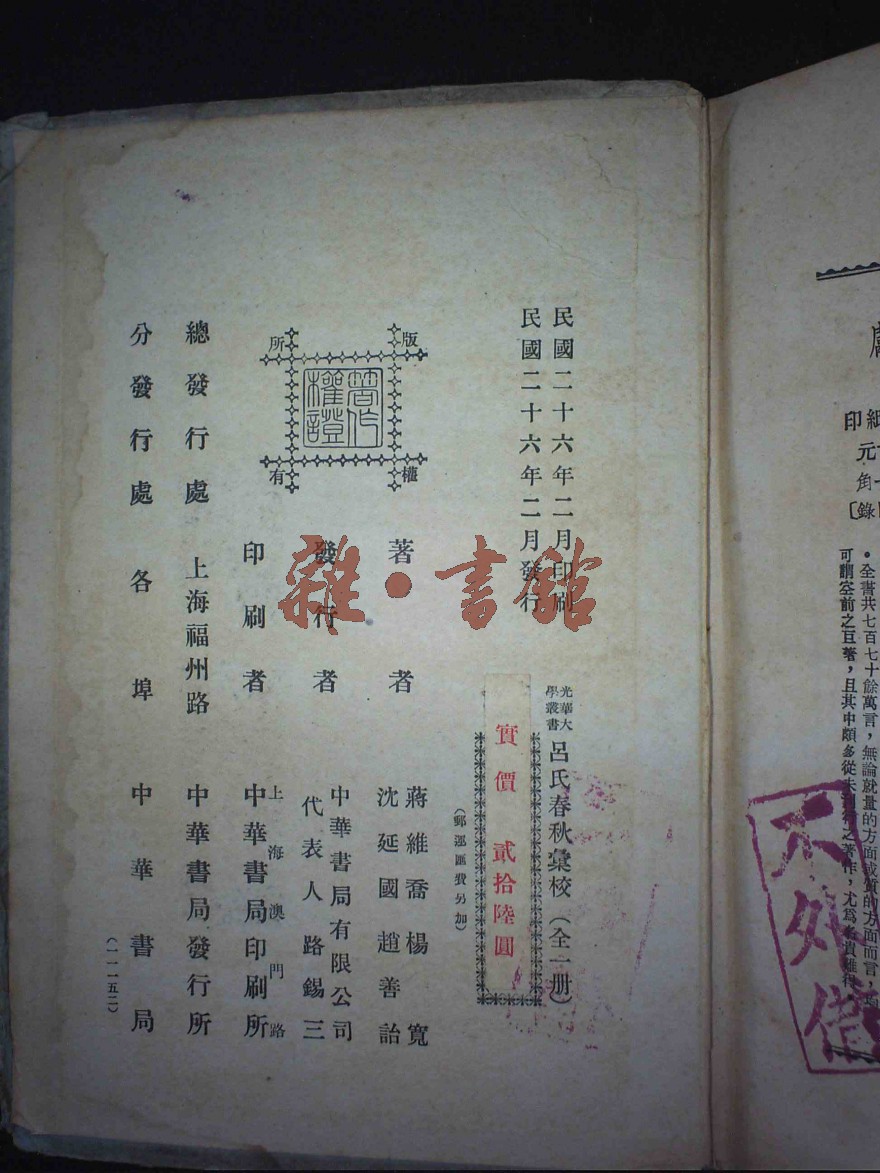 民國二十六年二月印刷
民國二十六年二月發行
光華大學叢書
呂氏春秋彙校(全一册)
實價 貳拾陸圓
(郵運匯費另加)
版權所有
著作權證
著者 蔣維喬 楊寬
沈延國 趙善詒
發行者 中華書局有限公司
代表人 路錫三
印刷者 上海澳門路
中華書局印刷所
總發行處 上海福州路 中華書局發行所
分發行處 各埠 中華書局
(一一一五二)
雜·書館
印
元
角
全書共七百七十餘萬言,無論就量的方面或質的方面而言,
可謂空前之巨著,且其中頗多從未刊行之著作,尤爲
不外借